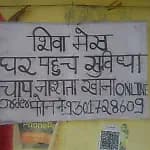 शिवा मेस
घर पहुच सुविधा
चाय नाश्ता खाना ONLINE
order फोन नं. 9301728609